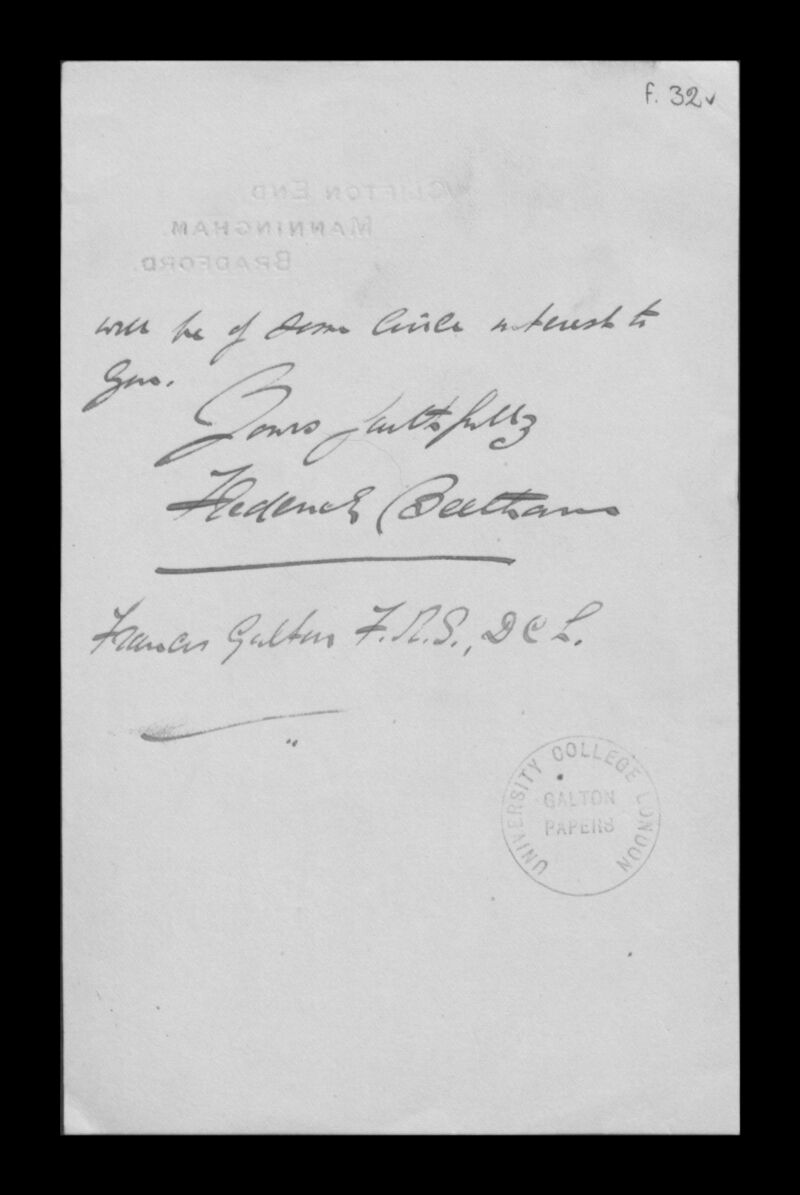 f. 32v
CLIFTON END,
MANNINGHAM,
BRADFORD.
will be of some little interest to
you.
Yours faithfully
Frederick Beetham
Francis Galton F.R.S., D C L.
UNIVERSITY COLLEGE LONDON
GALTON
PAPERS